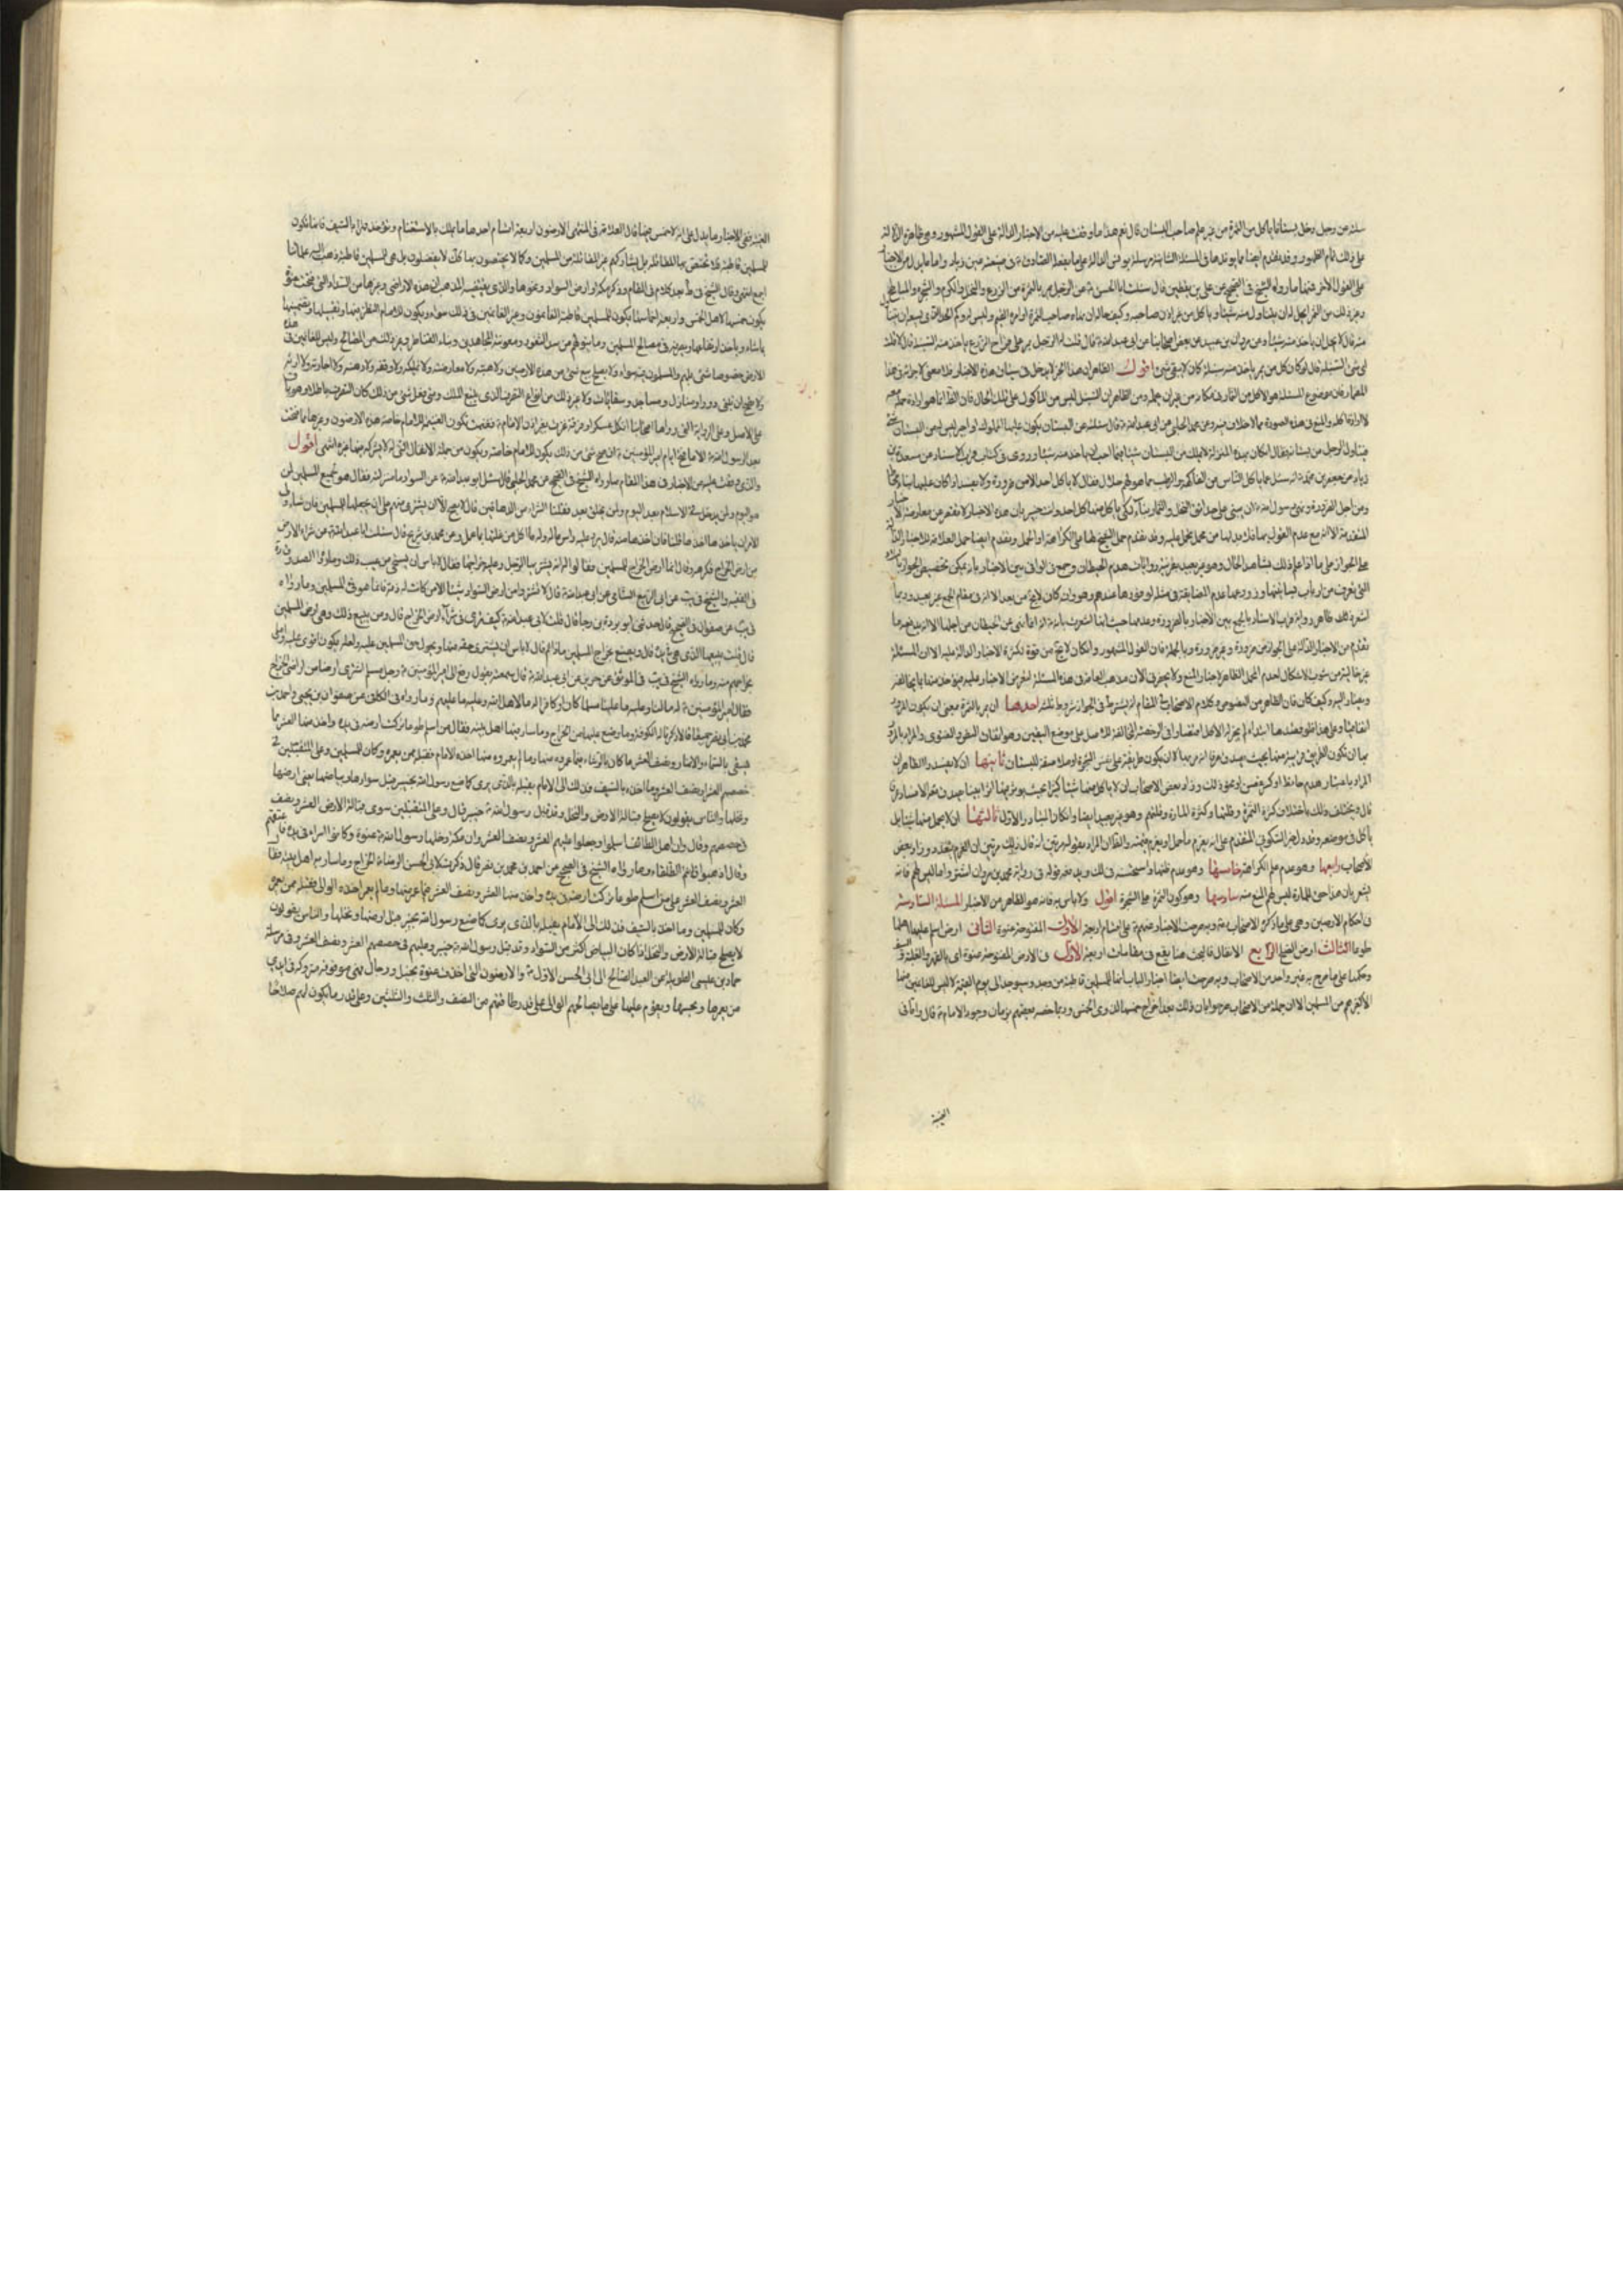 سئلته عن رجل دخل بستانا ياكل من الثمرة من غير علم صاحب البستان قال نعم هذا ما وقفت عليه من الاخبار الدالة على القول المشهور وهي ظاهرة الدلالة
على ذلك تمام الظهور وقد تقدم ايضا ما يؤيدها في المسئلة الثامنة واما ما يدل من الاخبار
على القول الآخر فمنها ما رواه الشيخ في الصحيح عن علي بن يقطين قال سئلت ابا الحسن ع عن الرجل يمر بالثمرة من الزرع والنخل والكرم والشجر والمباطخ
وغير ذلك من الثمر ايحل له ان يتناول منه شيئا وياكل من غير اذن صاحبه وكيف حاله ان نهاه صاحب الثمرة او امره القيم وليس له وكم الحد الذي يسعه ان يتناول
منه قال لا يحل له ان ياخذ منه شيئا وعن مروان بن عبيد عن بعض اصحابنا عن ابي عبد الله ع قال قلت له الرجل يمر على قراح الزرع ياخذ منه السنبلة قال لا قلت
اي شيء السنبلة قال لو كان كل من يمر ياخذ منه سنبلة كان لا يبقى شيء اقول الظاهر ان هذا الخبر لا يدخل في سياق هذه الاخبار فلا معنى لايراده في هذا
المضمار فان موضوع المسئلة هو الاكل من الثمار في مكانه من غير ان يحمله ومن الظاهر ان السنبل ليس من المأكول على تلك الحال فان الظاهر انما هو ارادة حمله
لا ارادة اكله والمنع في هذه الصورة مما لا خلاف فيه وعن محمد الحلبي عن ابي عبد الله ع قال سئلته عن البستان يكون عليه المملوك او اجير ليس له من البستان شيء
فيتناول الرجل من بستانه فقال ان كان بهذه المنزلة لا يملك من البستان شيئا فما احب ان ياخذ منه شيئا وروى في كتاب قرب الاسناد عن مسعدة بن
زياد عن جعفر بن محمد ع انه سئل عما ياكل الناس من الفاكهة والرطب مما هو لهم حلال فقال لا ياكل احد الا من ضرورة ولا يفسد اذا كان عليها بناء محاط
ومن اجل الضرورة نهى رسول الله ص ان يبنى على حدائق النخل والثمار بناء لكي ياكل منها كل احد وانت خبير بان هذه الاخبار لا تقصر عن معارضة الاخبار
المتقدمة الا انه مع عدم القول بها فلا بد لها من محمل تحمل عليه وقد تقدم حمل الشيخ لها على الكراهة او الحمل وتقدم ايضا حمل العلامة للاخبار الدالة
على الجواز على ما اذا علم ذلك بشاهد الحال وهو غير بعيد بقرينة روايات هدم الحيطان وجمع في الوافي بين الاخبار بانه يمكن تخصيص الجواز بالبلاد
التي تعرف من ارباب بساتينها وزروعها عدم المضايقة في مثله لوفورها عندهم وهو وان كان لا يخ من بعد الا انه في مقام الجمع غير بعيد وربما
اشعر ظاهر رواية قرب الاسناد بالجمع بين الاخبار بالضرورة وعدمها حيث انها اشعرت بانه انما نهى عن الحيطان من اجلها الا انه يدفعه ما
تقدم من الاخبار الدالة على الجواز من ضرورة وغير ضرورة وبالجملة فان القول المشهور وان كان لا يخ من قوة لكثرة الاخبار الدالة عليه الا ان المسئلة
غير خالية من شوب الاشكال لعدم المحمل الظاهر لاخبار المنع
وكيف كان فان الظاهر من النصوص وكلام الاصحاب في المقام انه يشترط في الجواز شروط ثلثة احدها ان يمر بالثمرة بمعنى ان يكون المرور
اتفاقيا وعلى هذا فلو قصدها ابتداء لم يجز له الاكل اقتصارا في الرخصة المخالفة للاصل على موضع اليقين وهو اتفاق النصوص والفتوى والمراد بالمرور
بها ان تكون الطريق قريبة منها بحيث يصدق عرفا انه مر بها لا ان يكون طريقه على نفس الشجرة او ملاصقة للبستان ثانيها ان لا يفسد والظاهر ان
المراد بالفساد هدم حائط او كسر غصن او نحو ذلك وزاد بعض الاصحاب ان لا ياكل منها شيئا كثيرا بحيث يؤثر فيها اثرا بينا ويصدق معه الافساد عرفا
قال ويختلف ذلك باختلاف كثرة الثمرة وقلتها وكثرة المارة وقلتهم وهو غير بعيد ايضا وان كان المتبادر الاول ثالثها ان لا يحمل منها شيئا بل
ياكل في موضعه
الاصحاب رابعها وهو عدم علم الكراهة خامسها وهو عدم ظنها واستحسنه في لك
يشعر بان هذا حق للمارة ليس لهم المنع منه سادسها وهو كون الثمرة على الشجرة اقول ولا باس به فانه هو الظاهر من الاخبار المسئلة السادسة
في احكام الارضين وهي على ما ذكره الاصحاب رض وبه صرحت الاخبار عنهم ع على اقسام اربعة الاول المفتوحة عنوة الثاني ارض اسلم عليها اهلها
طوعا الثالث ارض الصلح الرابع الانفال فالبحث هنا يقع في مقامات اربعة الاول في الارض المفتوحة عنوة اي بالقهر والغلبة والسيف
وحكمها على ما صرح به غير واحد من الاصحاب وبه صرحت ايضا اخبار الباب انها للمسلمين قاطبة من وجد وسيوجد الى يوم القيمة لا ليس للغانمين منها
الا كغيرهم من المسلمين الا ان جملة من الاصحاب صرحوا بان ذلك بعد اخراج خمسها لذوي الخمس وربما خصه بعضهم بزمان وجود الامام ع قال واما في
الغيبة
الغيبة ففي الاخبار ما يدل على انه لا خمس فيها قال العلامة في المنتهى الارضون اربعة اقسام احدها ما يملك بالاستغنام ويؤخذ قهرا بالسيف فانها تكون
للمسلمين قاطبة فلا تختص بها المقاتلة بل يشاركهم غير المقاتلة من المسلمين وكما لا يختصون بها كك لا يفضلون بل هي للمسلمين قاطبة ذهب اليه علمائنا
اجمع انتهى وقال الشيخ في ط
يكون خمسها لاهل الخمس واربعة اخماسها يكون للمسلمين قاطبة الغانمون وغير الغانمين في ذلك سواء ويكون للامام النظر فيها وتقبيلها وتضمينها
بما شاء وياخذ ارتفاعها ويصرفه في مصالح المسلمين وما ينوبهم من سد الثغور ومعونة المجاهدين وبناء القناطر وغير ذلك من المصالح وليس للغانمين في هذه
الارض خصوصا شيء بل هم والمسلمون فيه سواء ولا يصح بيع شيء من هذه الارضين ولا هبته ولا معاوضته ولا تمليكه ولا وقفه ولا رهنه ولا اجارته ولا ارثه
ولا يصح ان تبنى دورا ومنازل ومساجد وسقايات ولا غير ذلك من انواع التصرف الذي يتبع الملك ومتى فعل شيء من ذلك كان التصرف باطلا وهو باق
على الاصل وعلى الرواية التي رواها اصحابنا ان كل عسكر او فرقة غزت بغير اذن الامام ع فغنمت تكون الغنيمة للامام خاصة هذه الارضون وغيرها مما فتحت
بعد الرسول ص الا ما فتح ايام امير المؤمنين ع ان صح شيء من ذلك يكون للامام خاصة ويكون من جملة الانفال التي له لا يشركه فيها غيره انتهى اقول
والذي وقفت عليه من الاخبار في هذا المقام ما رواه الشيخ في الصحيح عن محمد الحلبي قال سئل ابو عبد الله ع عن السواد ما منزلته فقال هو لجميع المسلمين لمن
هو اليوم ولمن يدخل في الاسلام بعد اليوم ولمن يخلق بعد فقلنا الشراء من الدهاقين قال لا يصلح الا ان يشتري منهم على ان يجعلها للمسلمين فان شاء ولي
الامر ان ياخذها اخذها قلنا فان اخذها منه قال يرد عليه راس ماله وله ما اكل من غلتها بما عمل وعن محمد بن شريح قال سئلت ابا عبد الله ع عن شراء الارض
من ارض الخراج فكرهه وقال انما ارض الخراج للمسلمين فقالوا له انه يشتريها الرجل وعليه خراجها فقال لا باس الا ان يستحي من عيب ذلك وما رواه الصدوق
في الفقيه والشيخ في يب عن ابي الربيع الشامي عن ابي عبد الله ع قال لا تشتر من ارض السواد شيئا الا من كانت له ذمة فانما هو فيء للمسلمين وما رواه
في يب عن صفوان في الصحيح قال حدثني ابو بردة بن رجا قال قلت لابي عبد الله ع كيف ترى في شراء ارض الخراج قال ومن يبيع ذلك وهي ارض المسلمين
قال قلت يبيعها الذي هي في يده قال ويصنع بخراج المسلمين ماذا ثم قال لا باس ان يشتري حقه منها ويحول حق المسلمين عليه ولعله يكون اقوى عليها واملى
بخراجهم منه وما رواه الشيخ في يب في الموثق عن حريز عن ابي عبد الله ع قال سمعته يقول رفع الى امير المؤمنين ع رجل مسلم اشترى ارضا من اراضي الخراج
فقال امير المؤمنين ع له ما لنا وعليه ما علينا مسلما كان او كافرا له ما لاهل الله وعليه ما عليهم وما رواه في الكافي عن صفوان بن يحيى واحمد بن
محمد بن ابي نصر جميعا قالا ذكرنا له الكوفة وما وضع عليها من الخراج وما سار فيها اهل بيته فقال من اسلم طوعا تركت ارضه في يده واخذ منه العشر مما
سقي بالسماء والانهار ونصف العشر مما كان بالرشاء فيما عمروه منها وما لم يعمروه منها اخذه الامام فقبله ممن يعمره وكان للمسلمين وعلى المتقبلين في
حصصهم العشر او نصف العشر وما اخذ بالسيف فذلك الى الامام يقبله بالذي يرى كما صنع رسول الله ص بخيبر قبل سوادها وبياضها يعني ارضها
ونخلها والناس يقولون لا يصلح قبالة الارض والنخل وقد قبل رسول الله ص خيبر قال وعلى المتقبلين سوى قبالة الارض العشر ونصف
في حصصهم وقال وان اهل الطائف اسلموا وجعلوا عليهم العشر ونصف العشر وان مكة دخلها رسول الله ص عنوة وكانوا اسراء في يده فاعتقهم
وقال اذهبوا فانتم الطلقاء وما رواه الشيخ في الصحيح عن احمد بن محمد بن ابي نصر قال ذكرت لابي الحسن الرضا ع الخراج وما سار به اهل بيته فقال
العشر ونصف العشر على من اسلم طوعا تركت ارضه في يده واخذ منها العشر ونصف العشر فيما عمر منها وما لم يعمر اخذه الوالي فقبله ممن يعمره
وكان للمسلمين وما اخذ بالسيف فذلك الى الامام يقبله بالذي يرى كما صنع رسول الله ص بخيبر قبل ارضها ونخلها والناس يقولون
لا يصلح قبالة الارض والنخل اذا كان البياض اكثر من السواد وقد قبل رسول الله ص خيبر وعليهم في حصصهم العشر ونصف العشر وفي مرسلة
حماد بن عيسى الطويلة عن العبد الصالح ابي الحسن الاول ع والارضون التي اخذت عنوة بخيل ورجال فهي موقوفة متروكة في ايدي
من يعمرها ويحييها ويقوم عليها على ما يصالحهم الوالي على قدر طاقتهم من النصف والثلث والثلثين وعلى قدر ما يكون لهم صلاحا